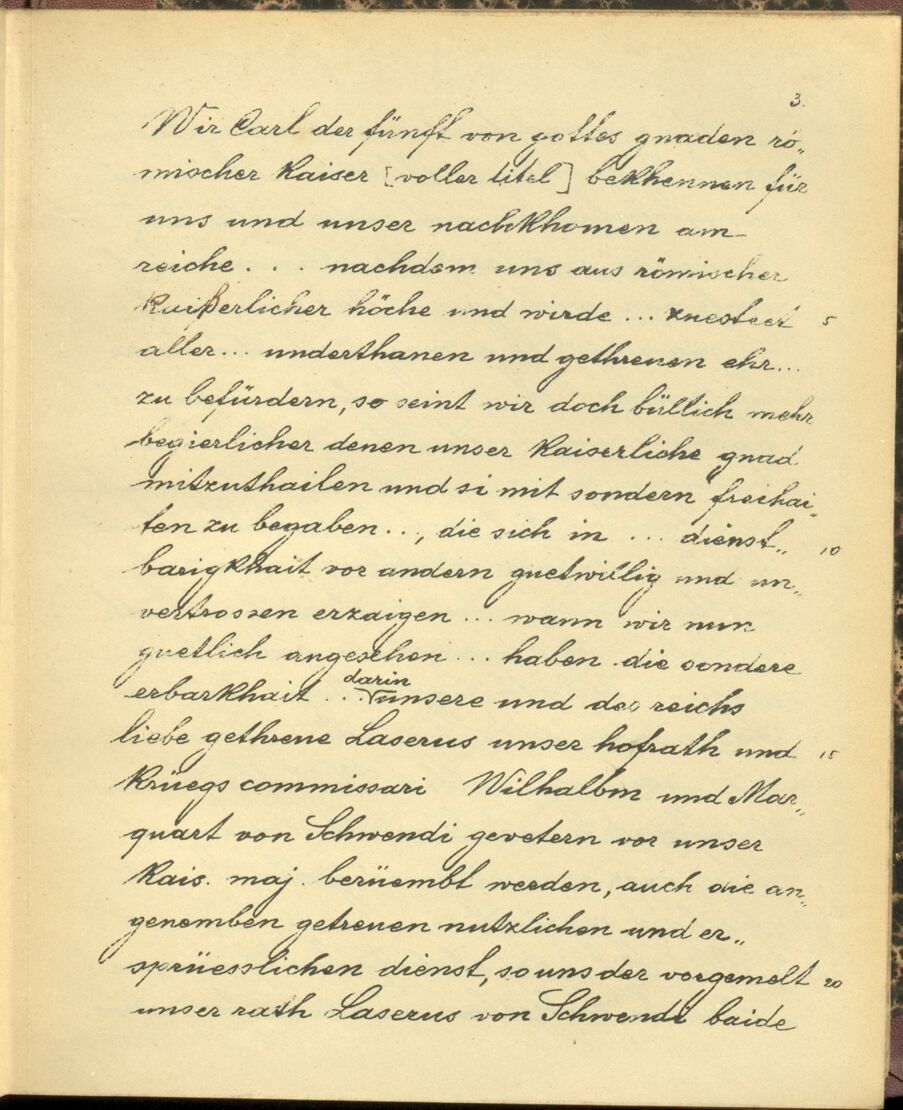 3.
Wir Carl der fünft von gottes gnaden rö„
mischer Kaiser [voller titel] bekhennen für
uns und unser nachkhomen am
reiche . . . nachdem uns aus römischer
kaißerlicher höche und wirde ... zuesteet 5
aller ... underthanen und gethreuen ehr...
zu befürdern, so seint wir doch büllich mehr
begierlicher denen unser Kaiserliche gnad
mitzuthailen und si mit sondern freihai„
ten zu begaben .., die sich in ... dienst„ 10
barigkhait vor andern guetwillig und un„
vertrossen erzaigen ... wann wir nun
guetlich angesehen ... haben die sondere
erbarkhait ... darin unsere und des reichs
liebe gethreue Laserus unser hofrath und 15
Krüegs commissari Wilhalbm und Mar„
quart von Schwendi gevetern vor unser
Kais. maj. berüembt werden, auch die an„
genemben getreuen nutzlichen und er„
sprüesslichen dienst, so uns der vorgemelt 20
unser rath Laserus von Schwendi baide